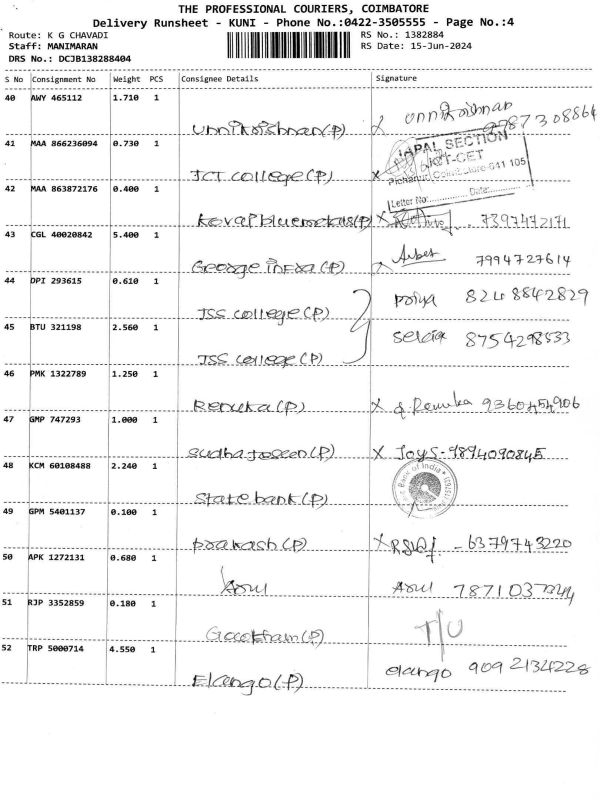 THE PROFESSIONAL COURIERS, COIMBATORE
Delivery Runsheet - KUNI - Phone No.:0422-3505555 - Page No.:4
Route: K G CHAVADI RS No.: 1382884
Staff: MANIMARAN RS Date: 15-Jun-2024
DRS No.: DCJB138288404
S No Consignment No Weight PCS Consignee Details Signature
40 AWY 465112 1.710 1
unnikrishnan(P) x unnikrishnan
41 MAA 866236094 0.730 1
JCT college(P) x
TAPAL SECTION
Pichanur, Coimbatore-641 105
Letter No:.......... Date:..........
42 MAA 863872176 0.400 1
Kovai bluemetals(P) x 7397472171
43 CGL 40020842 5.400 1
George infra(P) 7994727614
44 DPI 293615 0.610 1
JSS college(P) priya 8248842829
45 BTU 321198 2.560 1
JSS college(P) 8754298533
46 PMK 1322789 1.250 1
Renuka(P) x Renuka 9360454906
47 GMP 747293 1.000 1
x Joys-9894090845
48 KCM 60108488 2.240 1
State bank(P)
Bank of India
49 GPM 5401137 0.100 1
prakash(P) x -6379743220
50 APK 1272131 0.680 1
Arul Arul
51 RJP 3352859 0.180 1
Gowtham(P) T/U
52 TRP 5000714 4.550 1
Elango(P) elango 9092134228